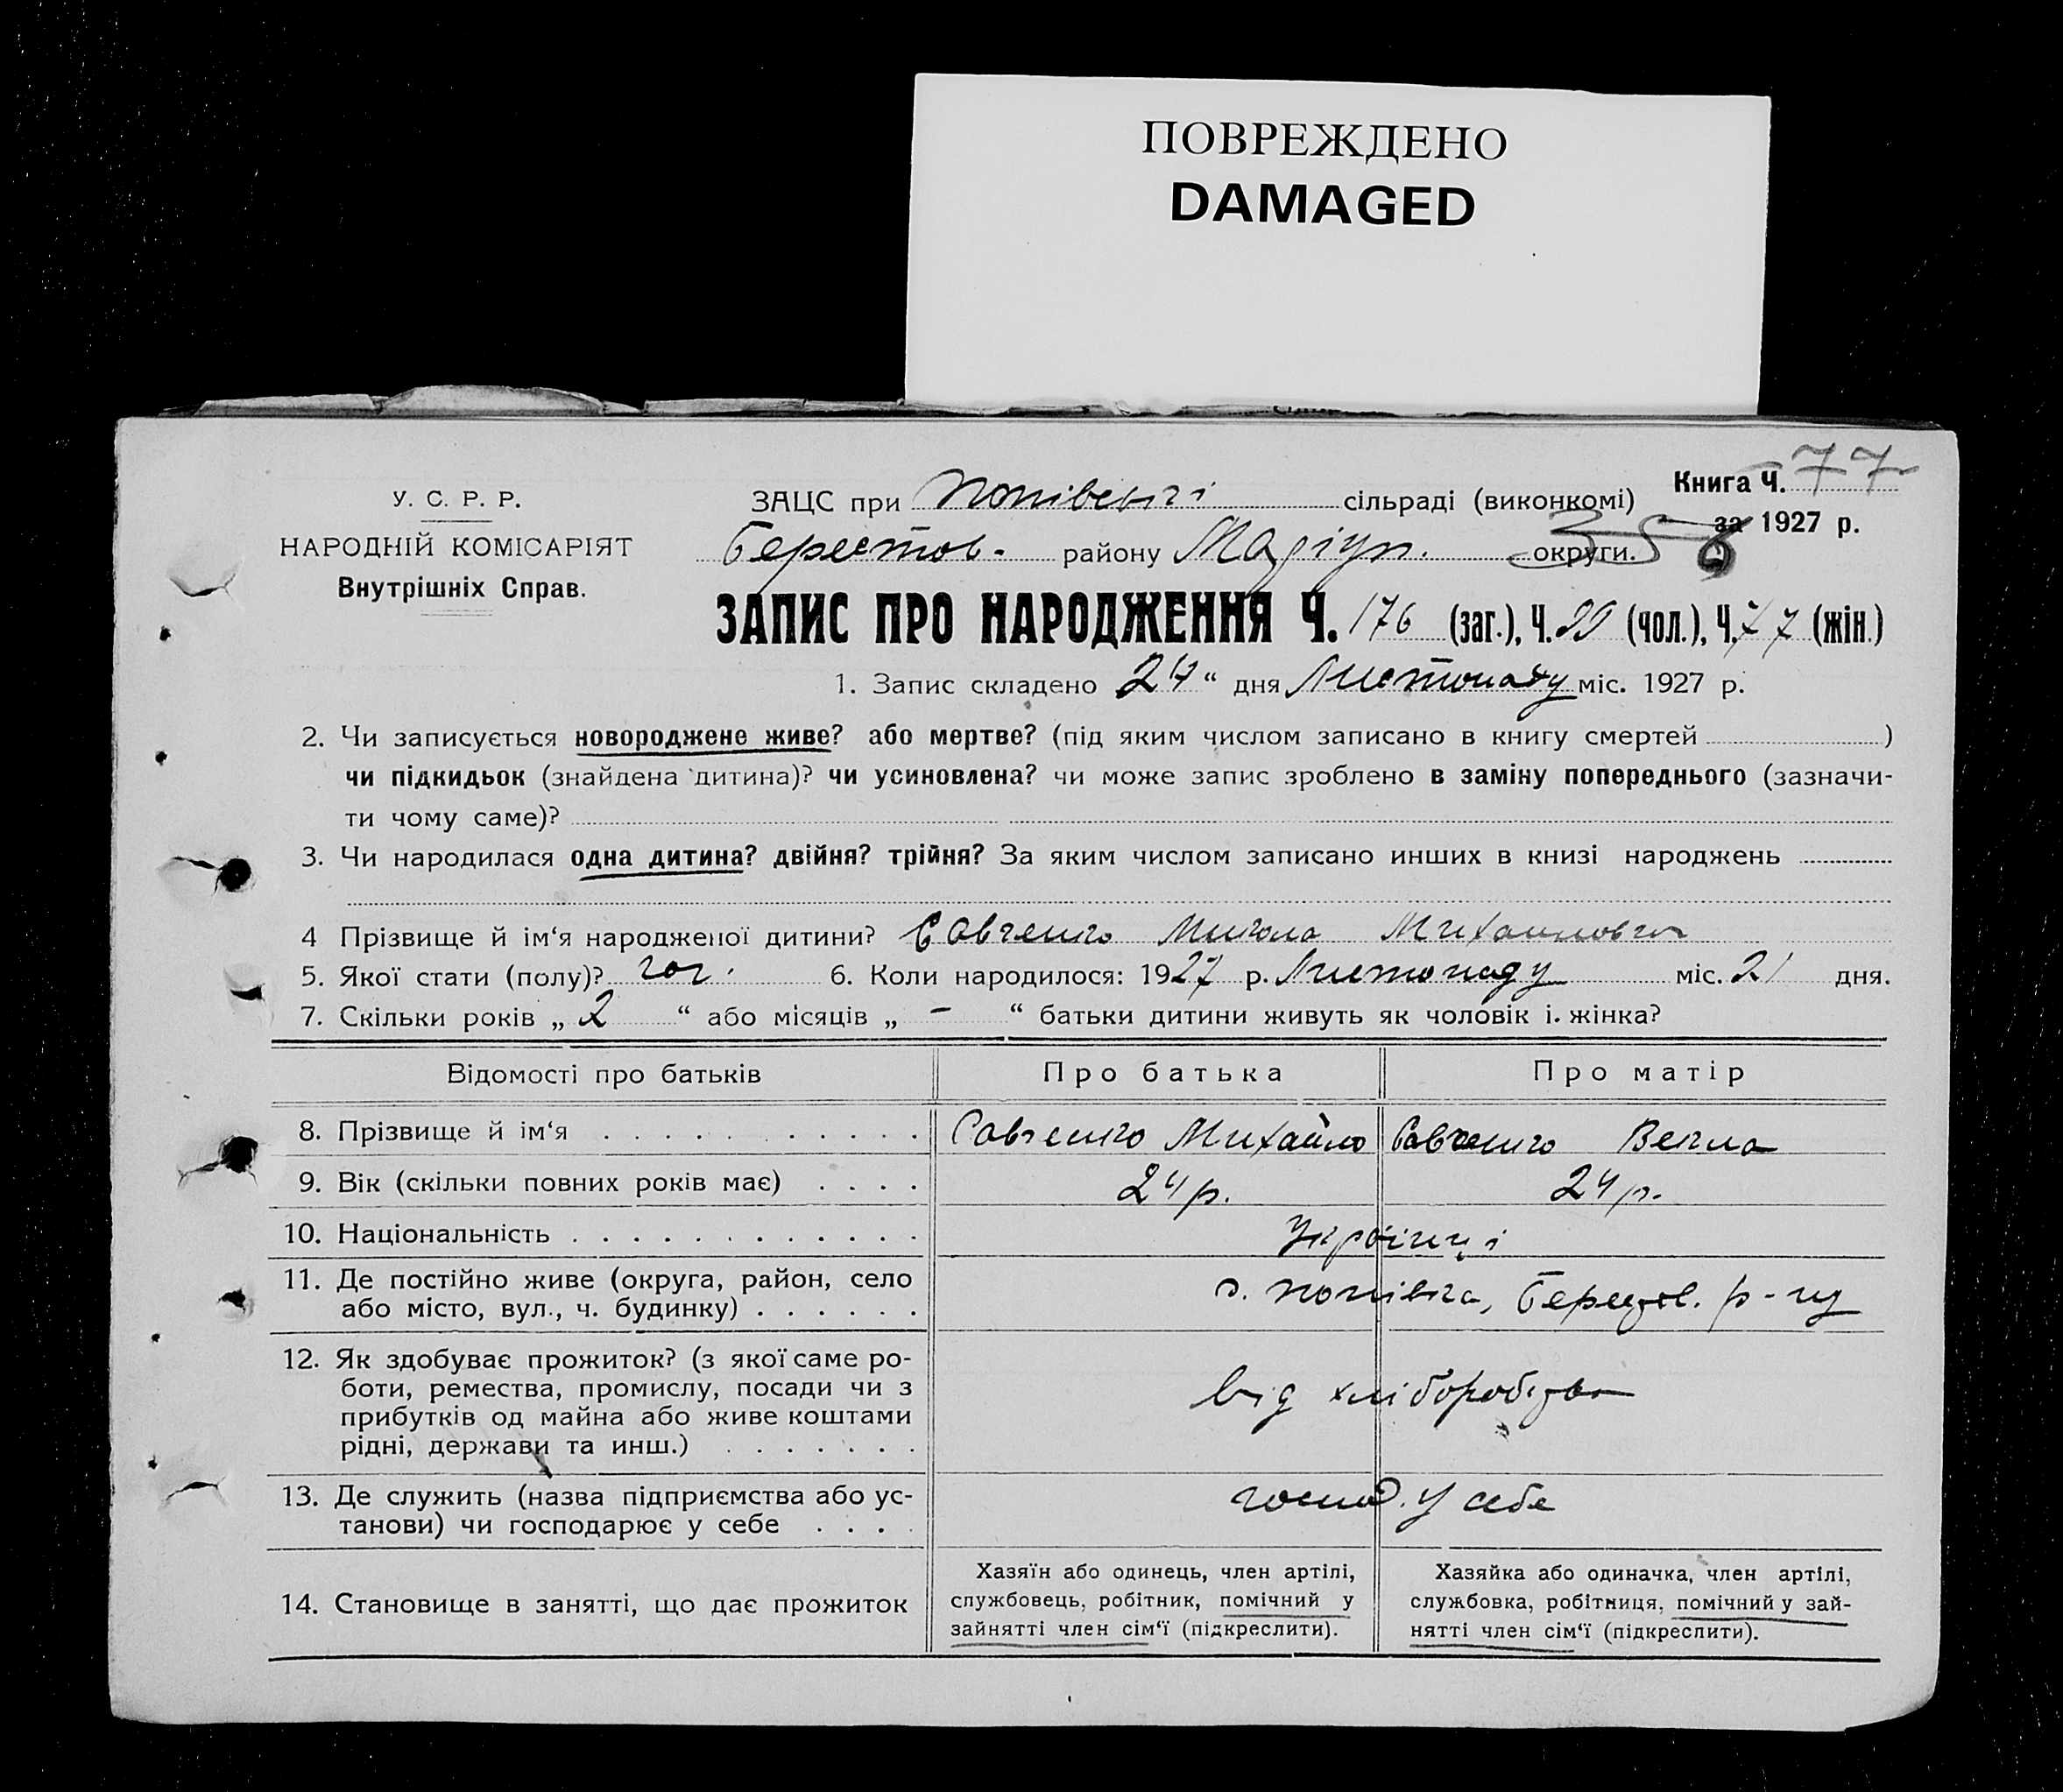 ПОВРЕЖДЕНО
DAMAGED
У. С. Р. Р.
НАРОДНІЙ КОМІСАРІЯТ
Внутрішніх Справ.
Книга Ч. 77
за 1927 р.
ЗАЦС при Попівській сільраді (виконкомі)
Берестов. району Маріуп. округи. 358
ЗАПИС ПРО НАРОДЖЕННЯ Ч. 176 (заг.), Ч. 99 (чол.), Ч. 77 (жін.)
1. Запис складено 24 “ дня Листопаду міс. 1927 р.
2. Чи записується новороджене живе? або мертве? (під яким числом записано в книгу смертей )
чи підкидьок (знайдена дитина)? чи усиновлена? чи може запис зроблено в заміну попереднього (зазначи-
ти чому саме)?
3. Чи народилася одна дитина? двійня? трійня? За яким числом записано инших в книзі народжень
4 Прізвище й ім‘я народженої дитини? Савченко Микола Михайлович
5. Якої стати (полу)? чол. 6. Коли народилося: 1927 р. Листопаду міс. 21 дня.
7. Скільки років „ 2 “ або місяців „ – “ батьки дитини живуть як чоловік і жінка?
Відомості про батьків Про батька Про матір
8. Прізвище й ім‘я Савченко Михайло Савченко Векла
9. Вік (скільки повних років має) 24 р. 24 р.
10. Національність Українці
11. Де постійно живе (округа, район, село
або місто, вул., ч. будинку) с. Попівка, Берестов. р-ну
12. Як здобуває прожиток? (з якої саме ро-
боти, ремества, промислу, посади чи з
прибутків од майна або живе коштами
рідні, держави та инш.) від хліборобства
13. Де служить (назва підприємства або ус-
танови) чи господарює у себе господ. у себе
14. Становище в занятті, що дає прожиток
Хазяїн або одинець, член артілі,
службовець, робітник, помічний у
зайнятті член сім‘ї (підкреслити).
Хазяйка або одиначка, член артілі,
службовка, робітниця, помічний у зай-
нятті член сім‘ї (підкреслити).